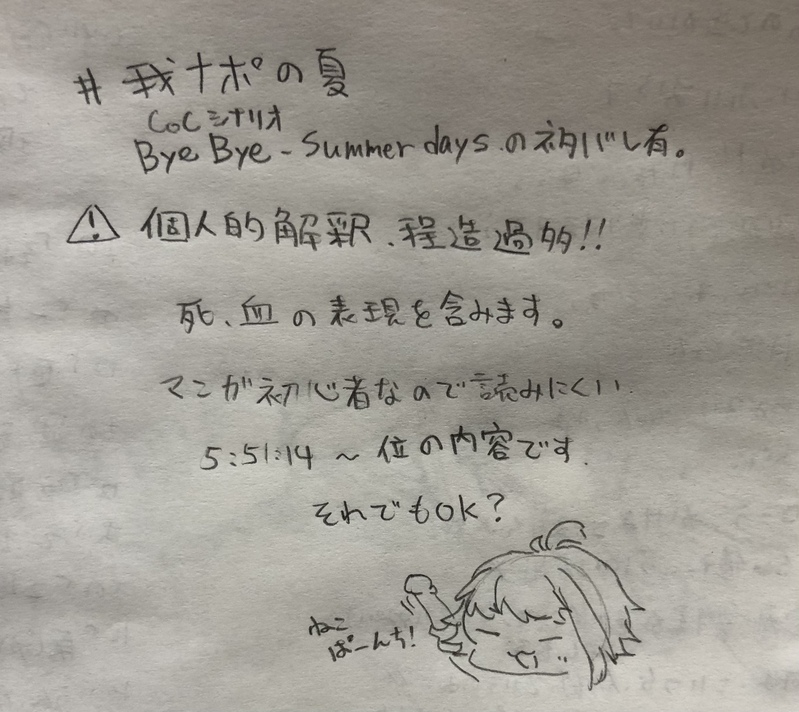 # 我ナポの夏
CoCシナリオ
Bye Bye - Summer days.のネタバレ有。
⚠ 個人的解釈、程造過多!!
死、血の表現を含みます。
マンガ初心者なので読みにくい.
5:51:14 ~ 位の内容です.
それでもOK?
ねこ
ぱーんち!